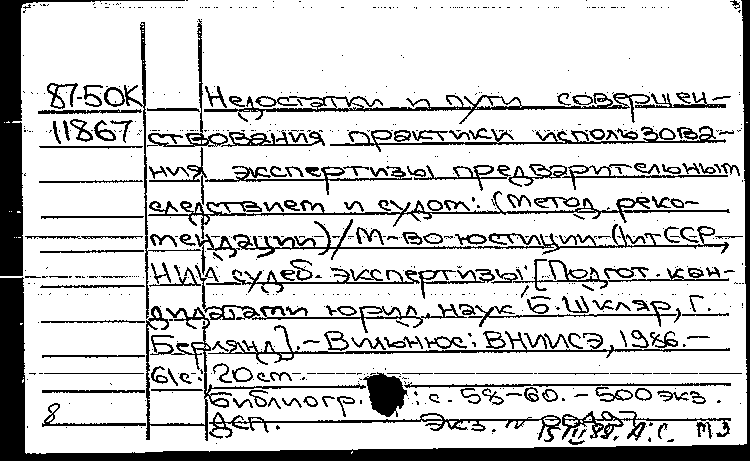 87-50К Недостатки и пути совершен-
11867 ствования практики использова-
ния экспертизы предварительным
следствием и судом: (Метод. реко-
мендации) / М-во юстиции ЛитССР,
НИИ судеб. экспертизы; [Подгот. кан-
дидатами юрид. наук Б. Шкляр, Г.
Берлянд]. - Вильнюс: ВНИИСЭ, 1986. -
61с.; 20см.
Библиогр.: с. 58-60. - 500 экз.
8 Дсп. Экз. N
15/III 88. А.С. МЗ